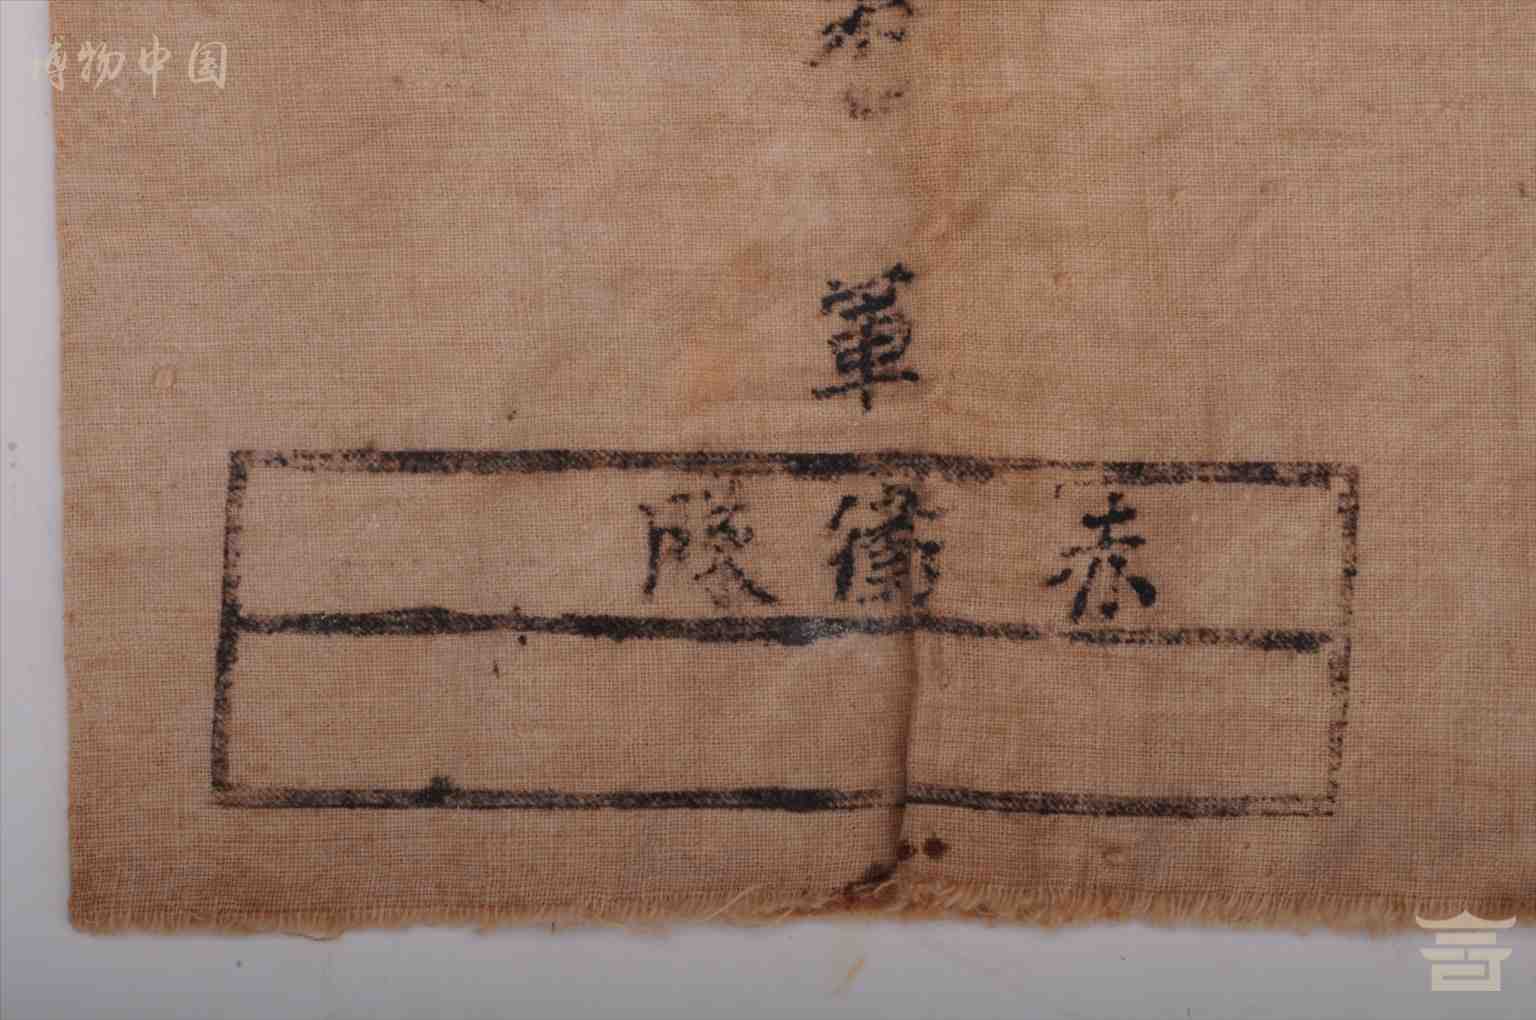 博物中国
軍
赤衛隊